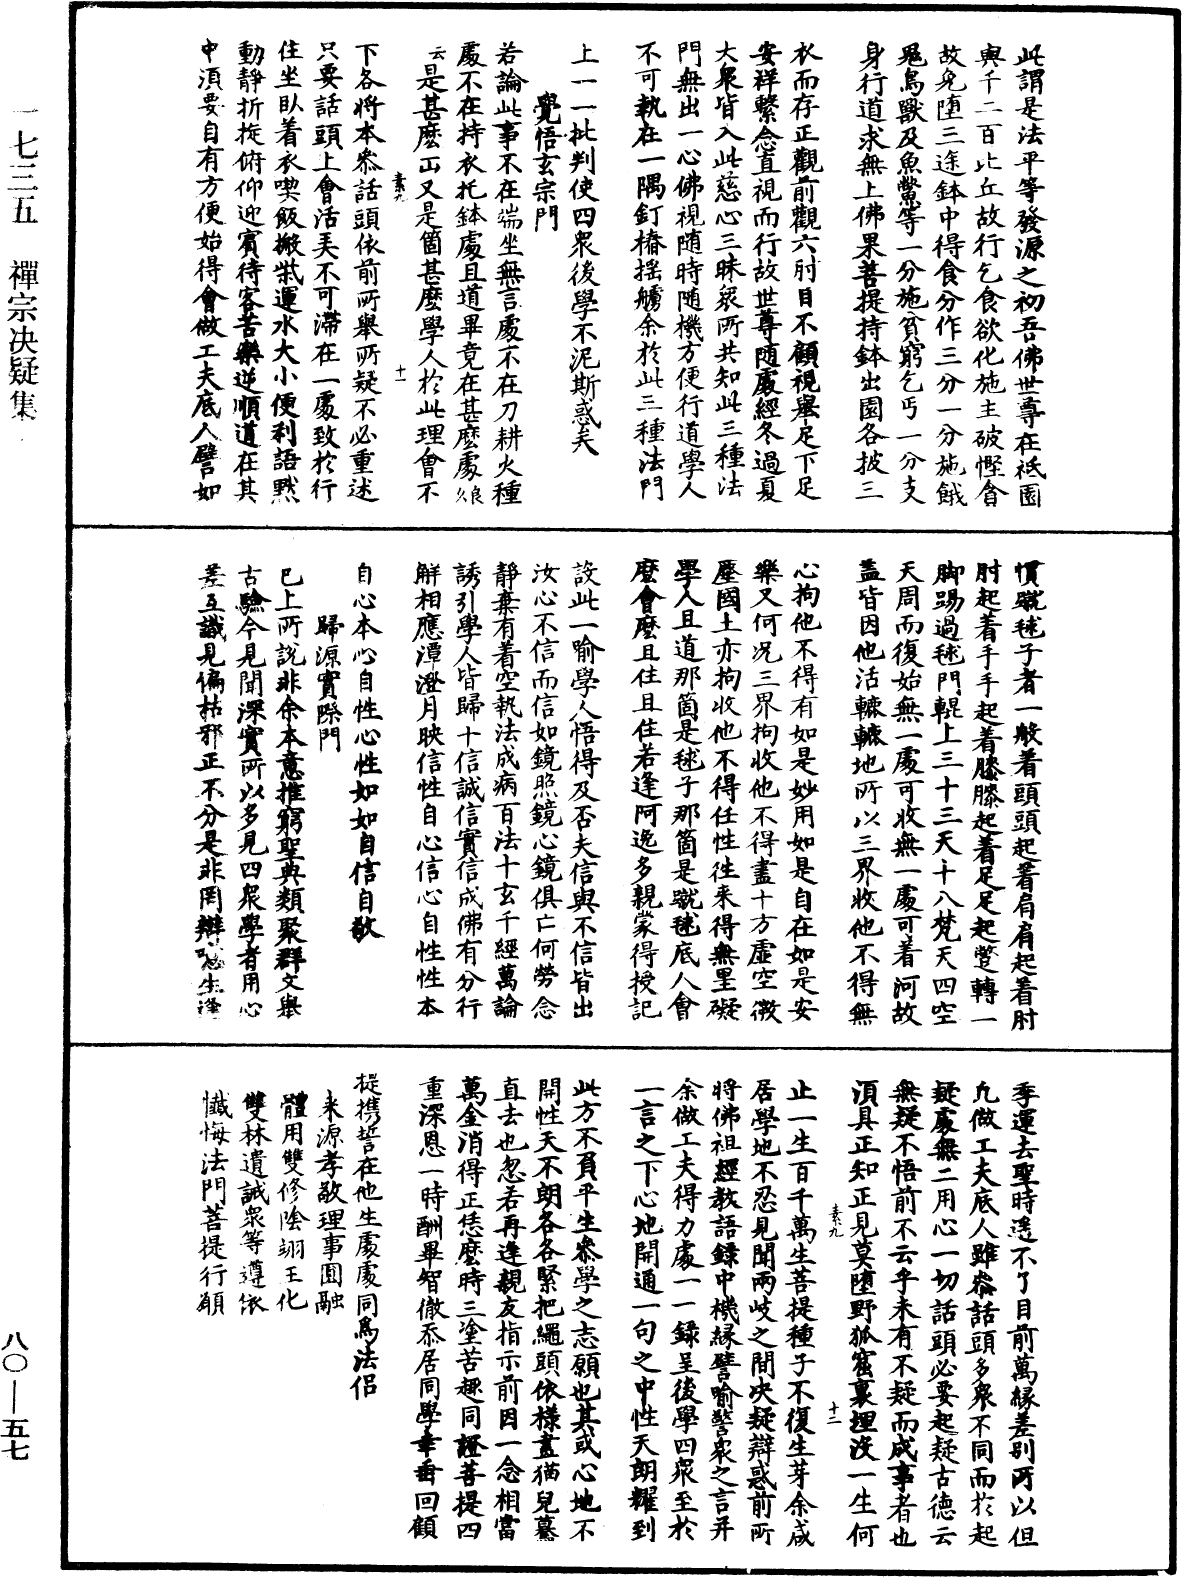 一七三五　禪宗决疑集
此謂是法平等發源之初吾佛世尊在祇園
與千二百比丘故行乞食欲化施主破慳貪
故免墮三途鉢中得食分作三分一分施餓
鬼鳥獸及魚鱉等一分施貧窮乞丐一分支
身行道求無上佛果菩提持鉢出園各披三
衣而存正觀前觀六肘目不顧視舉足下足
安祥繫念直視而行故世尊隨處經冬過夏
大衆皆入此慈心三昧衆所共知此三種法
門無出一心佛視隨時隨機方便行道學人
不可執在一隅釘樁搖艣余於此三種法門
上一一批判使四衆後學不泥斯惑矣
覺悟玄宗門
若論此事不在端坐無言處不在刀耕火種
處不在持衣托鉢處且道畢竟在甚麽處良
云是甚麽又是箇甚麽學人於此理會不
素九　十一
下各將本叅話頭依前所舉所疑不必重述
只要話頭上會活美不可滯在一處致於行
住坐臥着衣喫飯搬柴運水大小便利語默
動靜折旋俯仰迎賓待客苦樂逆順道在其
中須要自有方便始得會做工夫底人譬如
慣蹴毬子者一般着頭頭起着肩肩起着肘
肘起着手手起着膝膝起着足足起蹵轉一
脚踢過毬門輥上三十三天十八梵天四空
天周而復始無一處可收無一處可着河故
盖皆因他活轆轆地所以三界收他不得無
心拘他不得有如是妙用如是自在如是安
樂又何况三界拘收他不得盡十方虛空微
塵國土亦拘收他不得任性徃來得無罣礙
學人且道那箇是毬子那箇是蹴毬底人會
麽會麽且住且住若逢阿逸多親蒙得授記
設此一喻學人悟得及否夫信與不信皆出
汝心不信而信如鏡照鏡心鏡俱亡何勞念
靜棄有着空執法成病百法十玄千經萬論
誘引學人皆歸十信誠信實信成佛有分行
解相應潭澄月映信性自心信心自性性本
自心本心自性心性如如自信自敬
歸源實際門
已上所說非余本意推窮聖典類聚群文舉
古驗今見聞深實所以多見四衆學者用心
差互識見偏枯邪正不分是非罔辯生逢
季運去聖時遙不了目前萬緣差别所以但
凡做工夫底人雖叅話頭多衆不同而於起
疑處無二用心一切話頭必要起疑古德云
無疑不悟前不云乎未有不疑而成事者也
須具正知正見莫墮野狐窟裏埋没一生何
素九　十二
止一生百千萬生菩提種子不復生芽余咸
居學地不忍見聞兩岐之間决疑辯惑前所
將佛祖經教語錄中機緣譬喻警衆之言并
余做工夫得力處一一錄呈後學四衆至於
一言之下心地開通一句之中性天朗耀到
此方不負平生叅學之志願也其或心地不
開性天不朗各各緊把繩頭依樣畫猫兒驀
直去也忽若再逢親友指示前因一念相當
萬金消得正恁麽時三塗苦趣同證菩提四
重深恩一時酬畢智徹忝居同學幸垂回顧
提携誓在他生處處同爲法侣
来源孝敬理事圓融
體用雙修陰翊王化
雙林遺誠衆等遵依
懺悔法門菩提行願
八〇—五七